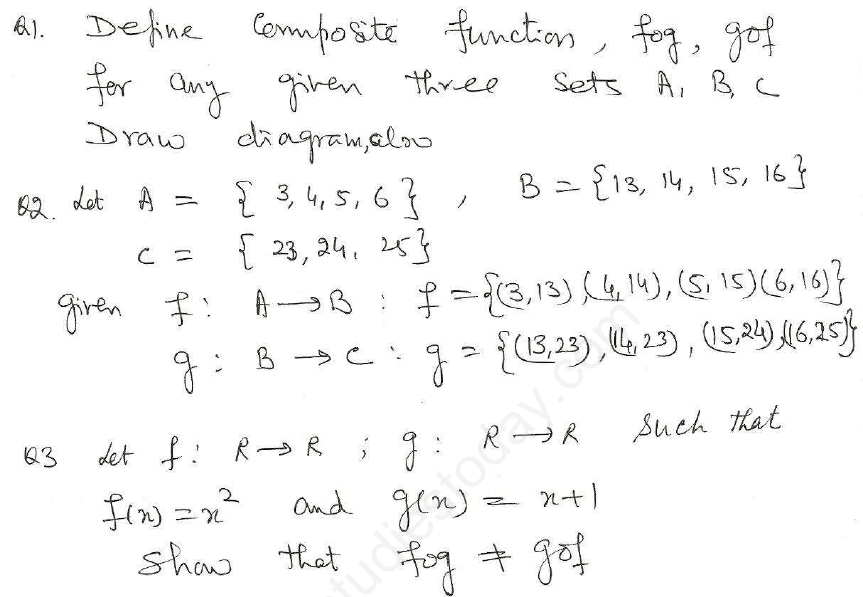 Q1. Define Composite function, fog, gof
for any given three sets A, B, C
Draw diagram, also
Q2. Let A = { 3, 4, 5, 6 }, B = {13, 14, 15, 16}
C = { 23, 24, 25}
given f : A → B : f = {(3,13),(4,14),(5,15)(6,16)}
g : B → C : g = {(13,23),(14,23),(15,24),(16,25)}
Q3 Let f : R → R ; g : R → R such that
f(x) = x² and g(x) = x+1
Show that fog ≠ gof
studiestoday.com